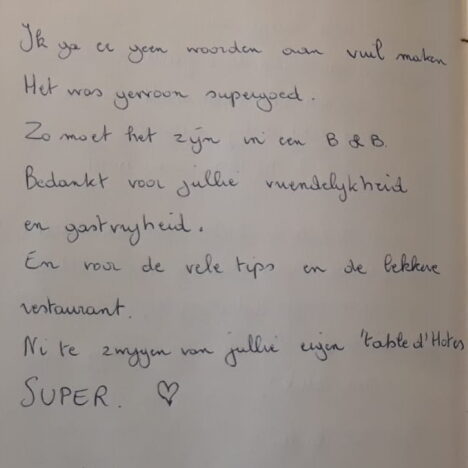 Ik ga er geen woorden aan vuil maken
Het was gewoon supergoed.
Zo moet het zijn in een B & B.
Bedankt voor jullie vriendelijkheid
en gastvrijheid.
En voor de vele tips en de lekkere
restaurant.
Ni te zwijgen van jullie eigen 'table d'Hotes
SUPER. ♡